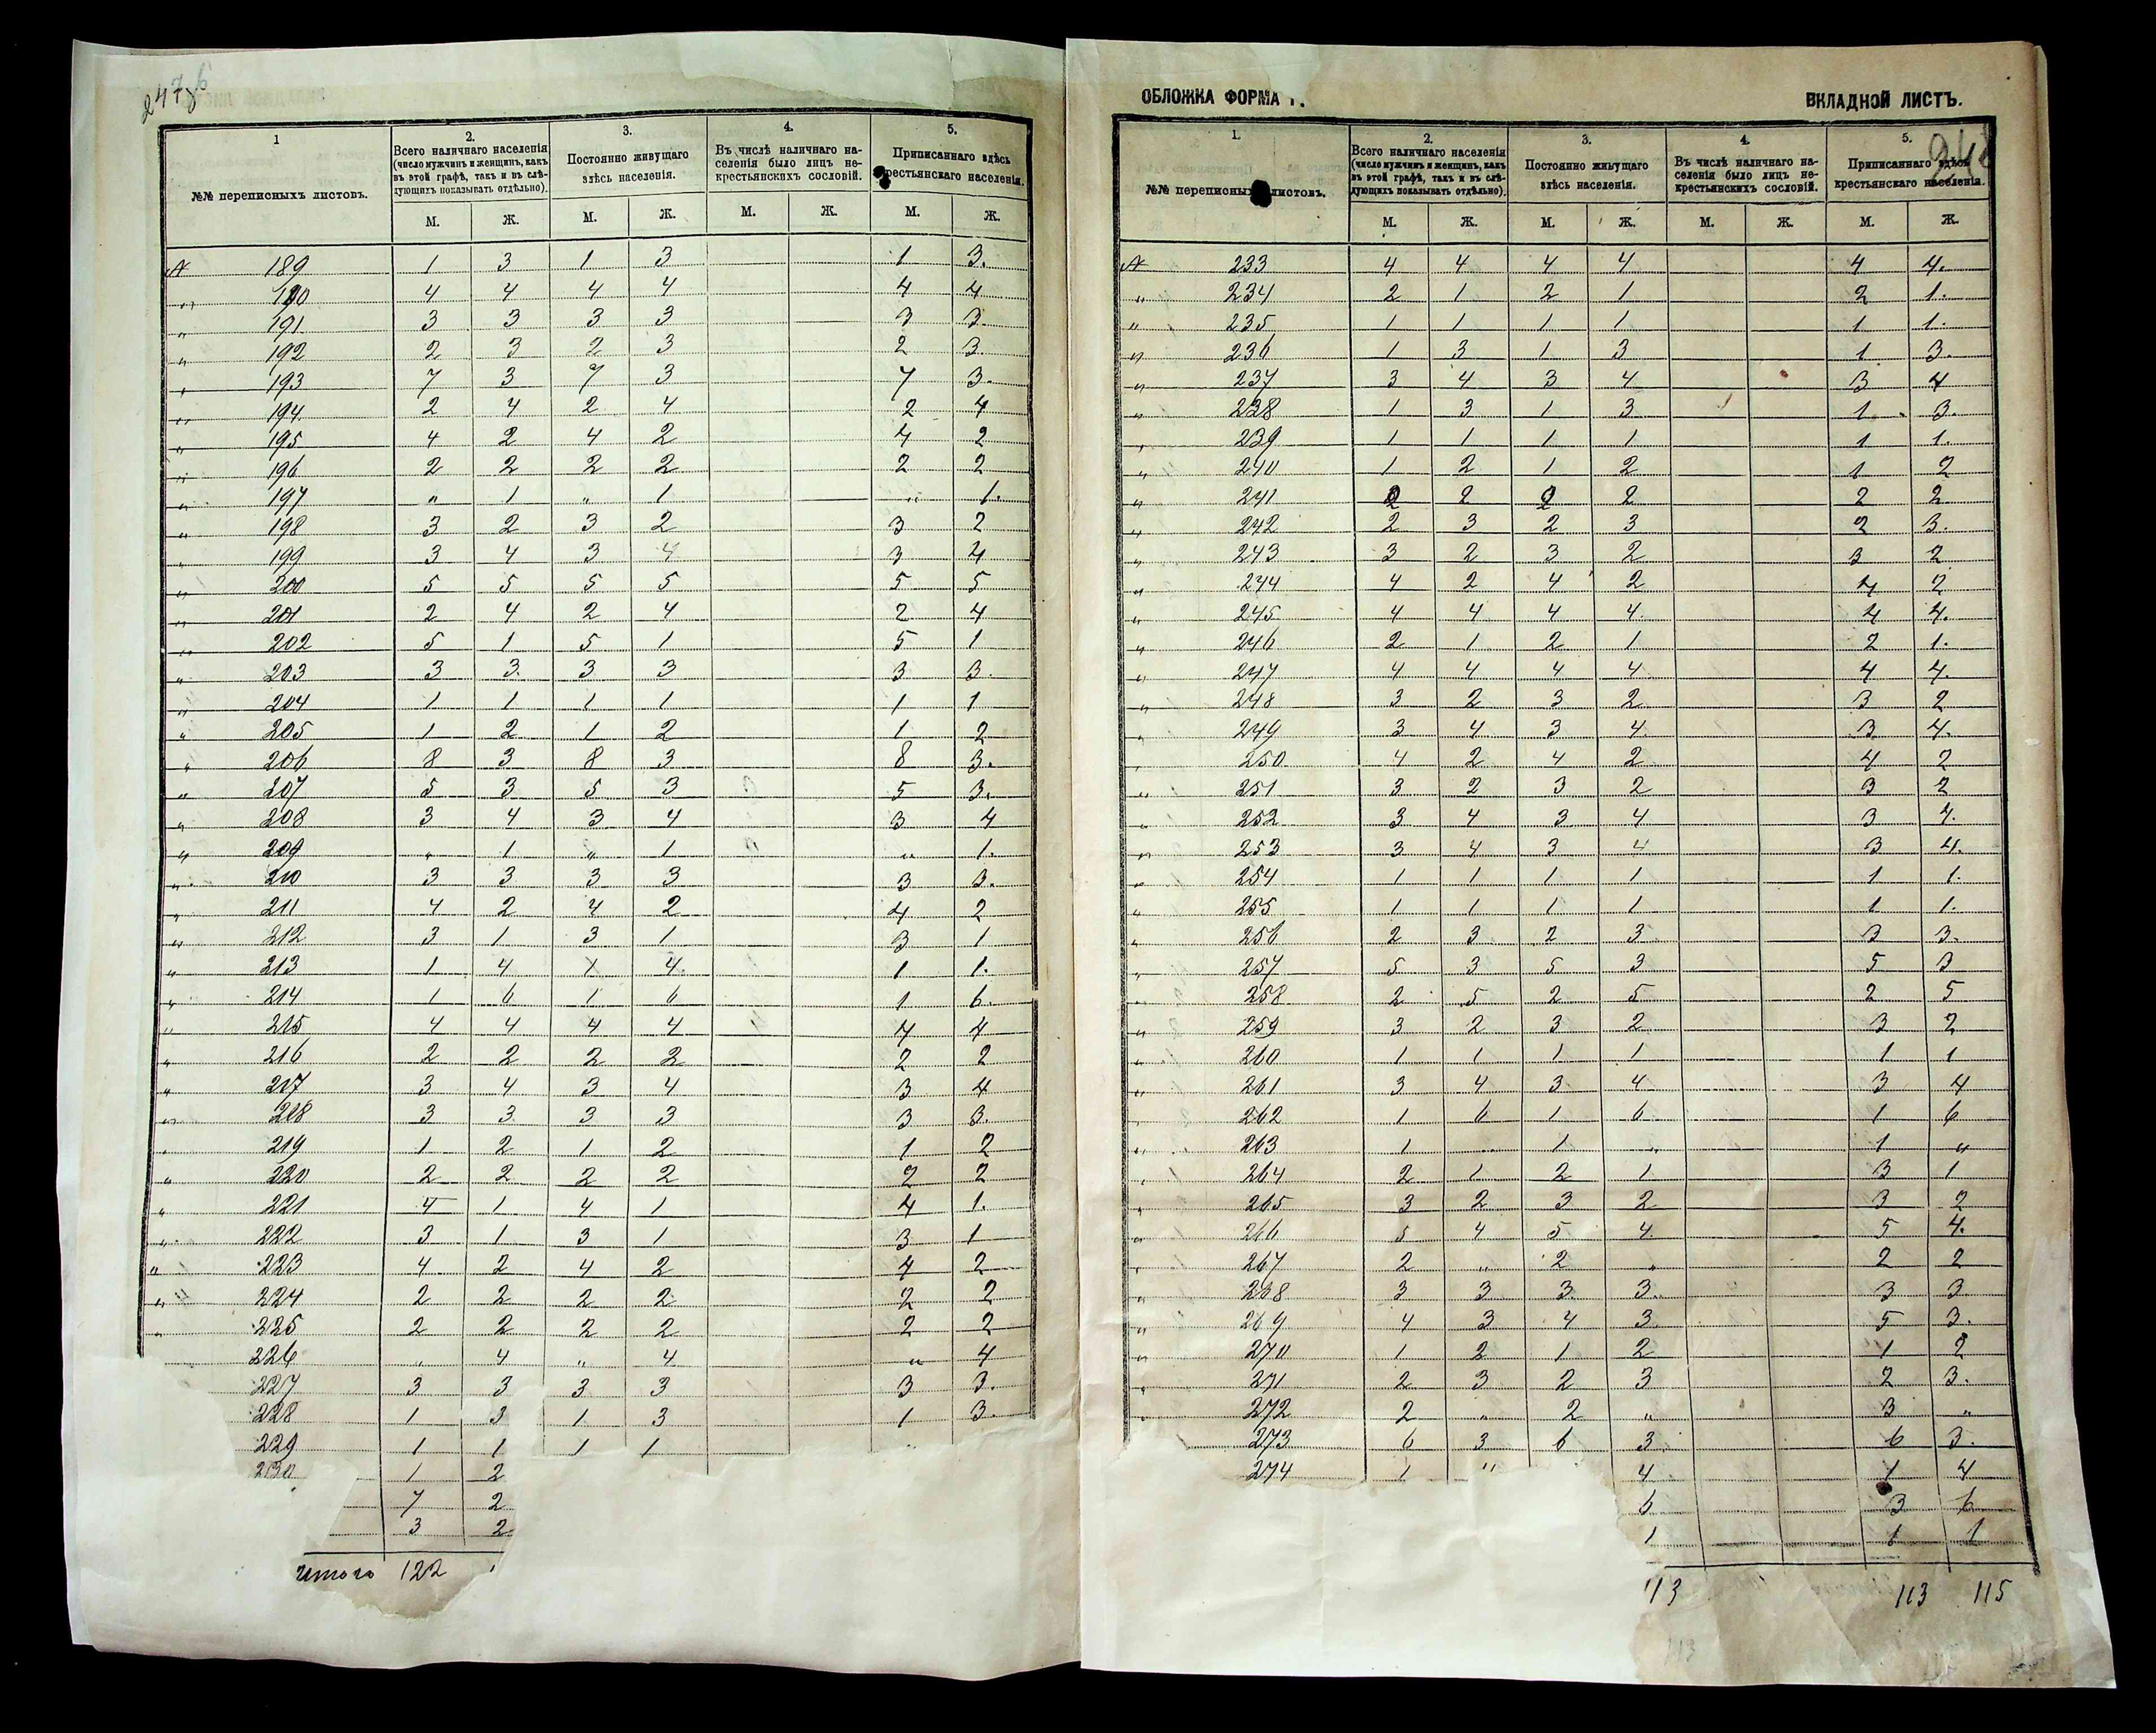 247 об
1 2. 3. 4. 5.
№№ переписныхъ листовъ. Всего наличнаго населенія (число мужчинъ и женщинъ, какъ въ этой графѣ, такъ и въ слѣдующихъ показывать отдѣльно). Постоянно живущаго здѣсь населенія. Въ числѣ наличнаго населенія было лицъ не-крестьянскихъ сословій. Приписаннаго здѣсь крестьянскаго населенія.
М. Ж. М. Ж. М. Ж. М. Ж.
№ 189 1 3 1 3 1 3.
„ 190 4 4 4 4 4 4
„ 191 3 3 3 3 3 3
„ 192 2 3 2 3 2 3.
„ 193 7 3 7 3 7 3.
„ 194 2 4 2 4 2 4
„ 195 4 2 4 2 4 2
„ 196 2 2 2 2 2 2
„ 197 „ 1 „ 1 „ 1.
„ 198 3 2 3 2 3 2
„ 199 3 4 3 4 3 4
„ 200 5 5 5 5 5 5
„ 201 2 4 2 4 2 4
„ 202 5 1 5 1 5 1
„ 203 3 3 3 3 3 3.
„ 204 1 1 1 1 1 1
„ 205 1 2 1 2 1 2
„ 206 8 3 8 3 8 3.
„ 207 5 3 5 3 5 3.
„ 208 3 4 3 4 3 4
„ 209 „ 1 „ 1 „ 1.
„ 210 3 3 3 3 3 3.
„ 211 4 2 4 2 4 2
„ 212 3 1 3 1 3 1
„ 213 1 4 1 4 1 1.
„ 214 1 6 1 6 1 6.
„ 215 4 4 4 4 4 4
„ 216 2 2 2 2 2 2
„ 217 3 4 3 4 3 4
„ 218 3 3 3 3 3 3.
„ 219 1 2 1 2 1 2
„ 220 2 2 2 2 2 2
„ 221 4 1 4 1 4 1.
„ 222 3 1 3 1 3 1
„ 223 4 2 4 2 4 2
„ 224 2 2 2 2 2 2
„ 225 2 2 2 2 2 2
226 „ 4 „ 4 „ 4
227 3 3 3 3 3 3.
228 1 3 1 3 1 3.
229 1 1 1 1
230 1 2
7 2
3 2
Итого 122
ОБЛОЖКА ФОРМА ВКЛАДНОЙ ЛИСТЪ.
1. 2. 3. 4. 5.
№№ переписныхъ листовъ. Всего наличнаго населенія (число мужчинъ и женщинъ, какъ въ этой графѣ, такъ и въ слѣдующихъ показывать отдѣльно). Постоянно живущаго здѣсь населенія. Въ числѣ наличнаго населенія было лицъ не-крестьянскихъ сословій. Приписаннаго здѣсь крестьянскаго населенія.
М. Ж. М. Ж. М. Ж. М. Ж.
№ 233 4 4 4 4 4 4.
„ 234 2 1 2 1 2 1.
„ 235 1 1 1 1 1 1.
„ 236 1 3 1 3 1 3.
„ 237 3 4 3 4 3 4
„ 238 1 3 1 3 1 3.
„ 239 1 1 1 1 1 1.
„ 240 1 2 1 2 1 2
„ 241 2 2 2 2 2 2
„ 242 2 3 2 3 2 3.
„ 243 3 2 3 2 3 2
„ 244 4 2 4 2 4 2
„ 245 4 4 4 4 4 4.
„ 246 2 1 2 1 2 1.
„ 247 4 4 4 4 4 4.
„ 248 3 2 3 2 3 2
„ 249 3 4 3 4 3 4.
„ 250 4 2 4 2 4 2
„ 251 3 2 3 2 3 2
„ 252 3 4 3 4 3 4.
„ 253 3 4 3 4 3 4.
„ 254 1 1 1 1 1 1.
„ 255 1 1 1 1 1 1.
„ 256 2 3 2 3 3 3.
„ 257 5 3 5 3 5 3
„ 258 2 5 2 5 2 5
„ 259 3 2 3 2 3 2
„ 260 1 1 1 1 1 1
„ 261 3 4 3 4 3 4
„ 262 1 6 1 6 1 6
„ 263 1 „ 1 „ 1 „
„ 264 2 1 2 1 3 1
„ 265 3 2 3 2 3 2
„ 266 5 4 5 4 5 4.
„ 267 2 „ 2 „ 2 2
„ 268 3 3 3 3 3 3
„ 269 4 3 4 3 5 3.
„ 270 1 2 1 2 1 2
„ 271 2 3 2 3 2 3.
„ 272 2 „ 2 „ 3 „
273 6 3 6 3 6 3.
274 1 „ 4 4
6 3 6
1 1 1
113 113 115